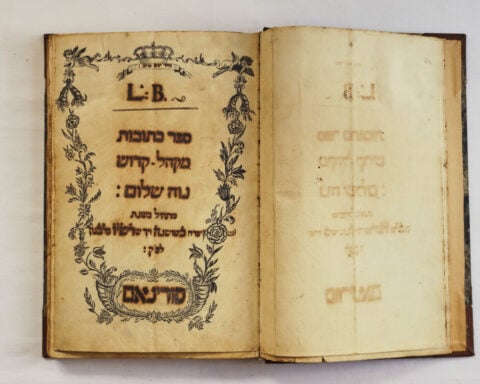 L.: B.
ספר כתובות
מקהל-קדוש
נוה שלום :
מתחיל בשנת
לפק :
סורינאם